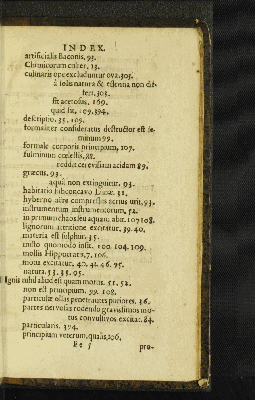 INDEX.
artificialis Baconis, 93.
Chimicorum culter, 13.
culinaris ope excluduntur ova, 303.
à solis natura & essentia non differt, 303.
fit acetosus, 169.
quid sit, 109. 394.
descriptio. 35. 109.
formaliter consideratus destructor est seminum 99.
formale corporis principium, 107.
fulminum cœlestis, 88.
reddit cerevisiam acidam 89.
græcus. 93.
aqua non extinguitur. 93.
habitatio sub concavo Lunæ. 31.
hyberno aëre compressus acrius urit, 93.
instrumentum instrumentorum, 52.
in primum chaos seu aquam abit. 107 108.
lignorum attritione excitatur. 39. 40.
materia est sulphur. 35.
misto quomodo insit. 100. 104. 109.
mollis Hippocratis, 7. 106.
motu excitatur. 40. 41. 46. 75.
natura. 53. 35. 95.
Ignis nihil aliud est quam motus. 51. 52.
non est principium. 99. 108.
particulæ ollas penetrantes puriores. 36.
partes nervosas rodendo gravissimos motus convulsivos excitat. 84.
particularis. 394.
principium veterum, qualis, 106.
Ee 5
pro-